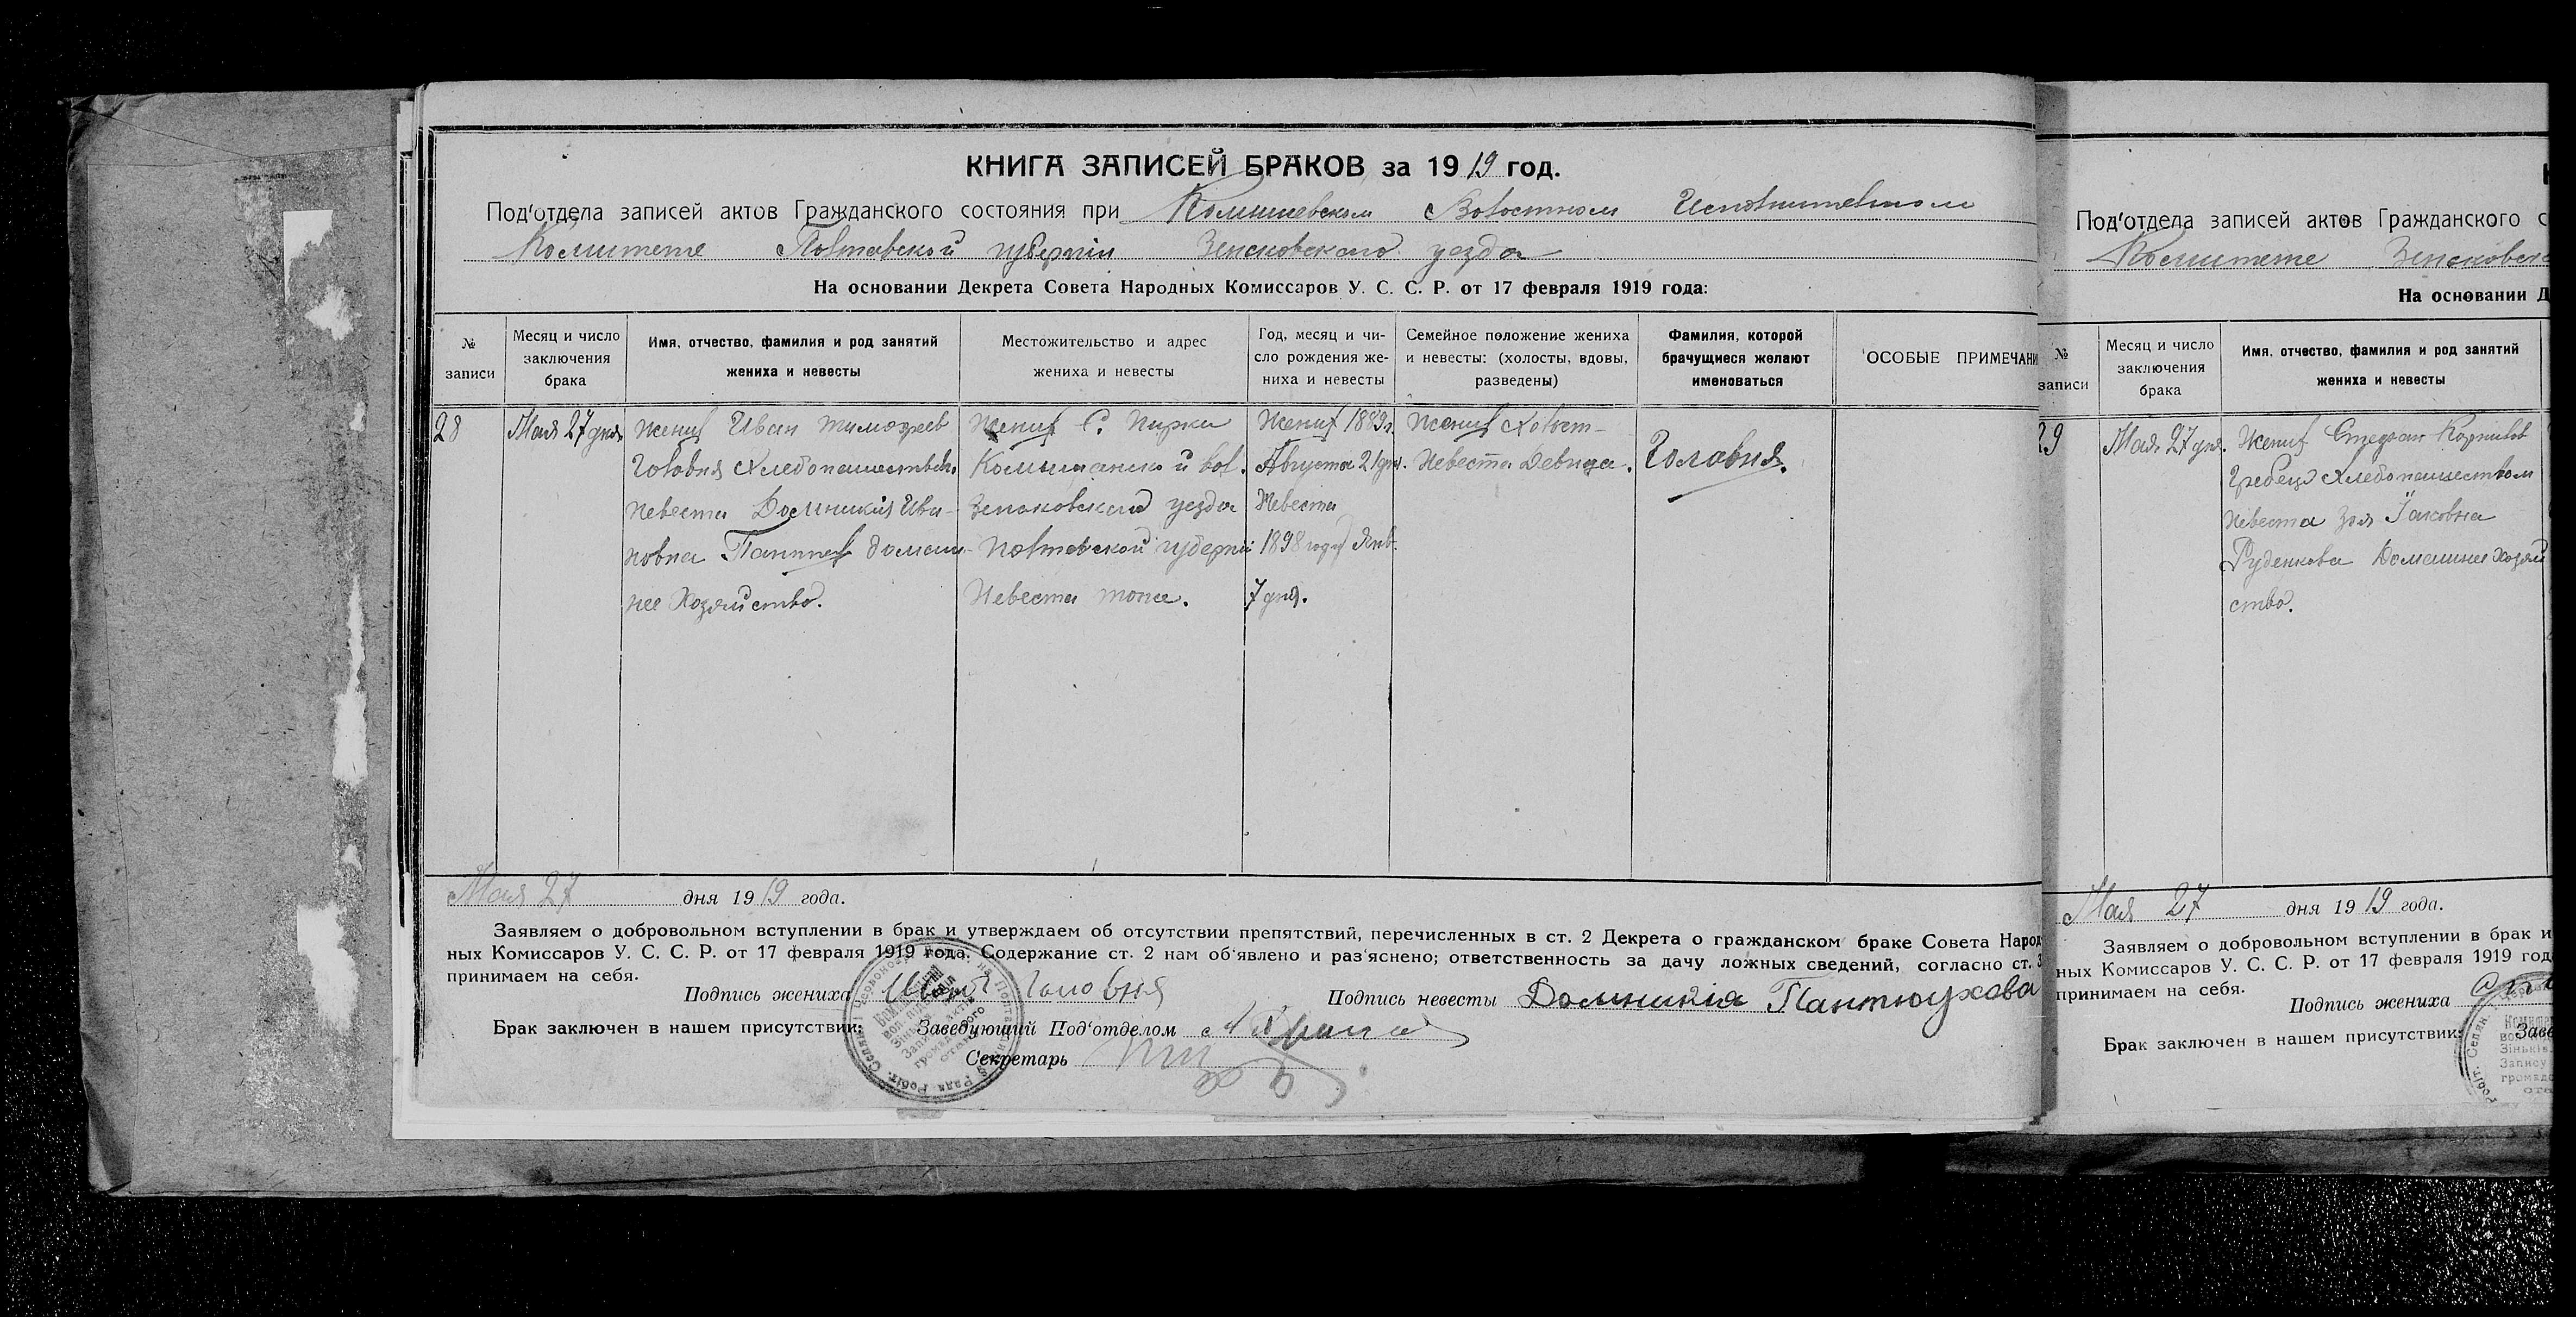 КНИГА ЗАПИСЕЙ БРАКОВ за 1919 год.
Под'отдела записей актов Гражданского состояния при Комышевском Волостном Исполнительном
Комитете Полтавской губернии Зеньковского уезда
На основании Декрета Совета Народных Комиссаров У. С. С. Р. от 17 февраля 1919 года:
№ записи
Месяц и число заключения брака
Имя, отчество, фамилия и род занятий жениха и невесты
Местожительство и адрес жениха и невесты
Год, месяц и число рождения жениха и невесты
Семейное положение жениха и невесты: (холосты, вдовы, разведены)
Фамилия, которой брачущиеся желают именоваться
ОСОБЫЕ ПРИМЕЧАНИ
28
Мая 27 дня
Жених Иван Тимофеев
Головня Хлебопашеством
Невеста Домникия Ива-
новна домаш-
нее Хозяйство.
Жених С. Пирки
вол.
Зеньковского уезда
Полтавской губернии
Невеста тоже.
Жених 1889 г.
Августа 21 дня.
Невеста
1898 года Янв.
7 дня.
Жених Холост-
Невеста Девица.
Головня.
Мая 27 дня 1919 года.
Заявляем о добровольном вступлении в брак и утверждаем об отсутствии препятствий, перечисленных в ст. 2 Декрета о гражданском браке Совета Народ
ных Комиссаров У. С. С. Р. от 17 февраля 1919 года. Содержание ст. 2 нам об'явлено и раз'яснено; ответственность за дачу ложных сведений, согласно ст. 3
принимаем на себя.
Подпись жениха Иван Головня
Подпись невесты Домникія Пантюхова
Брак заключен в нашем присутствии: Заведующий Под'отделом
Секретарь
Под'отдела записей актов Гражданского с
Комитете Зеньковск
На основании Д
№ записи
Месяц и число заключения брака
Имя, отчество, фамилия и род занятий жениха и невесты
29
Мая 27 дня.
Жених Стефан Корнилов
Гребец Хлебопашеством
Невеста Зоя Іаковна
Руденкова Домашнее Хозяй
ство.
Мая 27 дня 1919 года.
Заявляем о добровольном вступлении в брак и
ных Комиссаров У. С. С. Р. от 17 февраля 1919 год
принимаем на себя.
Подпись жениха
Брак заключен в нашем присутствии: Заве